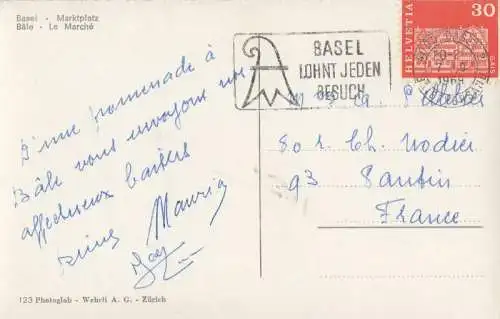 Basel - Marktplatz
Bâle - Le Marché
HELVETIA
30
BASEL
LOHNT JEDEN
BESUCH
1969
D'une promenade à
Bâle vous envoyons nos
affectueux baisers
Maurice
80 r. Ch. Nodier
93 Pantin
France
123 Photoglob - Wehrli A. G. - Zürich